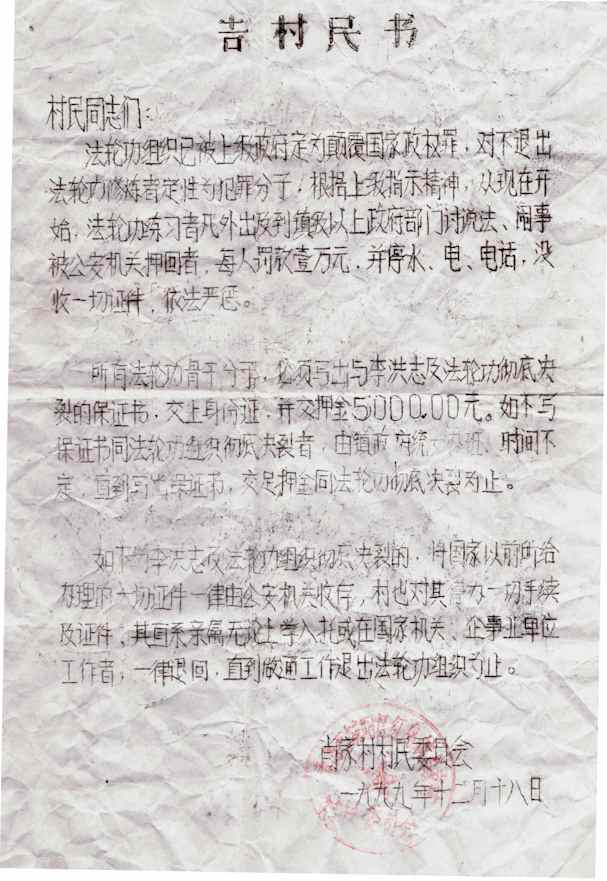 告村民书
村民同志们：
法轮功组织已被上级政府定为颠覆国家政权罪，对不退出
法轮功修炼者定性为犯罪分子，根据上级指示精神，从现在开
始，法轮功练习者凡外出及到镇及以上政府部门讨说法、闹事
被公安机关押回者，每人罚款壹万元，并停水、电、电话，没
收一切证件，依法严惩。
所有法轮功骨干分子，必须写出与李洪志及法轮功彻底决
裂的保证书，交上身份证，并交押金5000.00元。如不写
保证书同法轮功组织彻底决裂者，由镇政府统一办班、时间不
定，直到写出保证书，交足押金同法轮功彻底决裂为止。
如不与李洪志及法轮功组织彻底决裂的，将国家以前所给
办理的一切证件一律由公安机关收存，村也对其停办一切手续
及证件，其直系亲属无论上学入托或在国家机关、企事业单位
工作者，一律退回，直到做通工作退出法轮功组织为止。
肖家村村民委员会
一九九九年十二月十八日